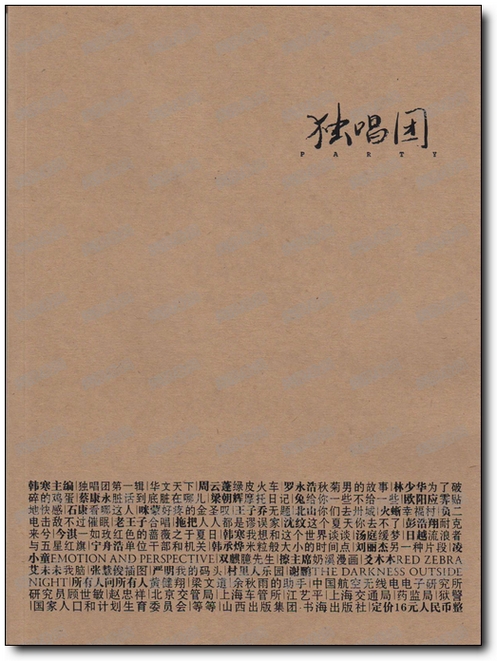 独唱团
PARTY
韩寒主编|独唱团第一辑|华文天下|周云蓬绿皮火车|罗永浩秋菊男的故事|林少华为了破
碎的鸡蛋|蔡康永脏话到底脏在哪儿|梁朝辉摩托日记|兔给你一些不给一些|欧阳应霁贴
地快感|石康看哪这人|咪蒙好疼的金圣叹|王子乔无题|北山你们去卅城|火蜥幸福村|负二
电击敌不过催眠|老王子合唱|拖把人人都是谬误家|沈纹这个夏天你去不了|彭浩翔耐克
来兮|今淇一如玫红色的蔷薇之于夏日|韩寒我想和这个世界谈谈|汤庭缓梦|日越流浪者
与五星红旗|宁舟浩单位干部和机关|韩承烨米粒般大小的时间点|刘丽杰另一种片段|凌
小童EMOTION AND PERSPECTIVE|双麒臆先生|擦主席奶溪漫画|爻木木RED ZEBRA
艾未未我脑|张慧骏插图|严明我的码头|村里人乐园|谢鹏THE DARKNESS OUTSIDE
NIGHT|所有人问所有人|黄健翔|梁文道|余秋雨的助手|中国航空无线电电子研究所
研究员顾世敏|赵忠祥|北京交管局|上海车管所|江艺平|上海交通局|药监局|狱警
|国家人口和计划生育委员会|等等|山西出版集团|书海出版社|定价16元人民币整